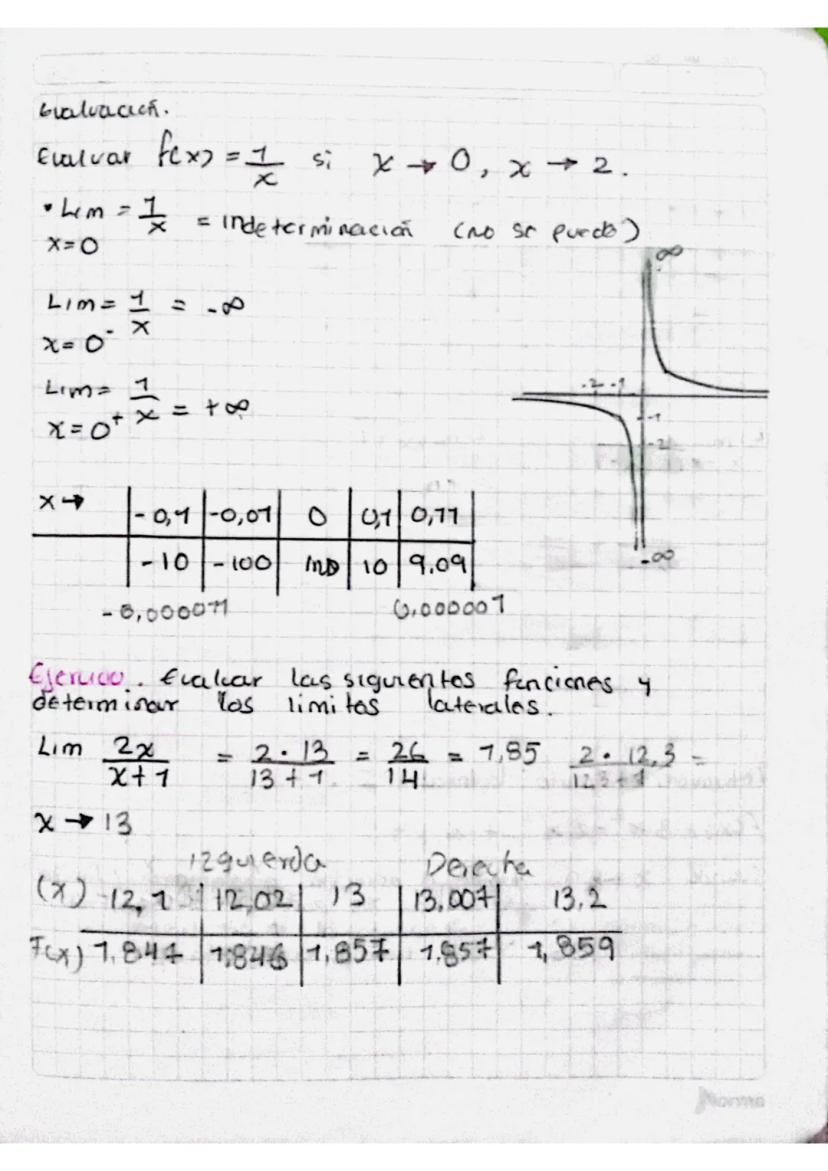 Evaluación.
Evaluar f(x) = 1/x si x → 0, x → 2.
• Lim = 1/x = indeterminación (no se puede)
x=0
Lim = 1/x = -∞
x = 0⁻
Lim = 1/x = +∞
x = 0⁺
∞
-2 -1
-1
-2
-∞
x → | -0,1 | -0,01 | 0 | 0,1 | 0,11
-10 | -100 | IND | 10 | 9.09
-0,000011 0,000001
Ejercicio. Evaluar las siguientes funciones y
determinar los limites laterales.
Lim 2x/x+1 = 2·13/13+1 = 26/14 = 1,85 2·12,3 =
x → 13
Izquierda Derecha
(x) 12,1 | 12,02 | 13 | 13,001 | 13,2
F(x) 1,847 | 1,846 | 1,857 | 1.857 | 1,859
Norma